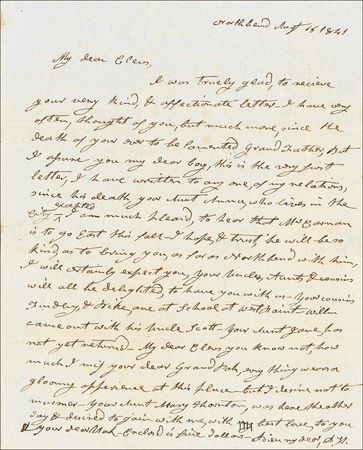 North bend Augt 18 1841
My dear Cleves,
I was truely glad, to recieve
your very kind, & affectionate letter - I have very
often, thought of you, but much more, since the
death of your ever to be lamented Grand Father, But
I assure you my dear boy, this is the very first
letter, I have written to any one, of my relations,
since his death, your Aunt Anna, who lives in the
City excepted I am much pleased, to hear that Mr
is to go East this fall - I hope, & trust he will be so
kind, as to bring you, as far as North bend with him,
I will certainly expect you, your Uncles, Aunts, & cousins
will all be delighted, to have you with us - your cousins
Findlay, & Pike, are at School at west Point - will
came out with his Uncle Scott - Your Aunt Jane, has
not yet returned - My dear Cleves you know not, how
much I miss your dear Grand Pah, every thing wears a
gloomy apperience at this place - but I desire not to
murmer - Your Aunt Mary Thornton, was here the other
day & desired to join with me, with best love to you
& your dear Mah - Enclosd is five Dollars - Adieu my dear, A. H.